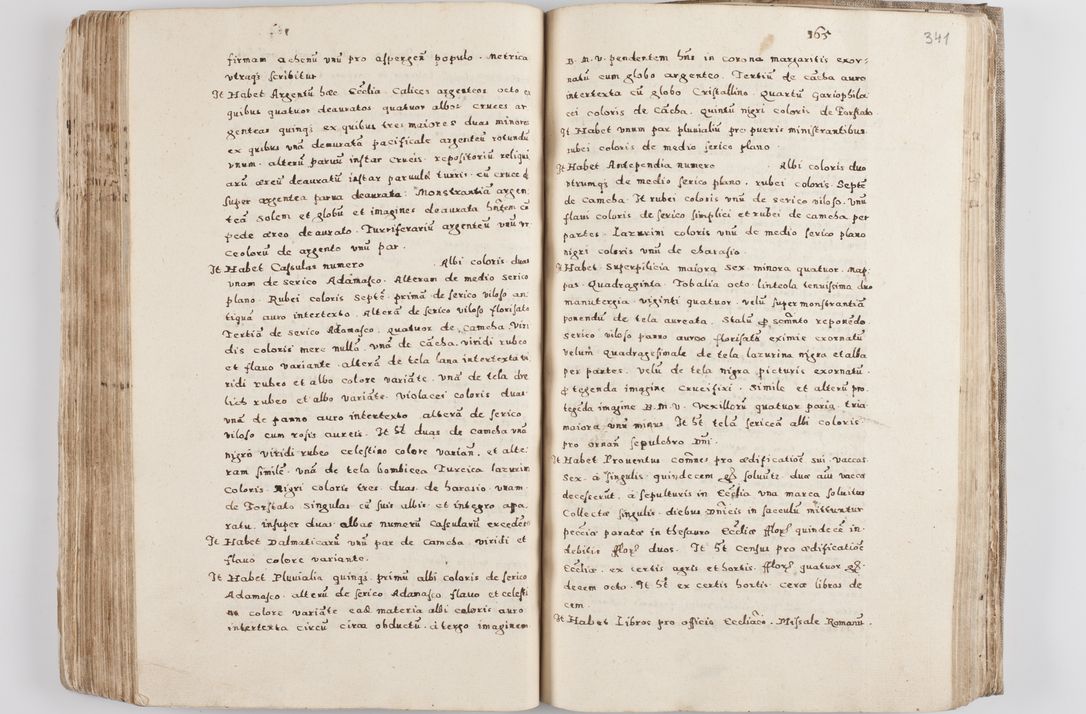 firmam achenū unū pro aspergeñ populo. Metrica
utraqȝ scribitur
It Habet Argentū hæc Ecclia. Calices argenteos octo ex
quibus quatuor deauratos quatuor albos cruces ar
genteas quinqȝ ex quibus tres maiores duas minores
ex quibus unā deauratā pacificale argenteū rotundū
unum. alterū parvū instar crucis. repositoriū reliqui
arū æreū deauratū instar parvulæ turris. cū cruce
super argentea parva deaurata. Monstrantiā argen
teā solem et globū et imagines deaurata hñtem cū
pede æreo deaurato. Turriferariū argenteū unū ur
ceolorū de argento unū par.
It Habet Casulas numero Albi coloris duas
unam de serico Adamasco. Alteram de medio serico
plano. Rubei coloris Septē. primā de serico viloso an
tiquā auro intertexto. Alterā de serico viloso florisato
Tertiā de serico Adamasco. quatuor de Camcha Viri
dis coloris mere nullā. unā de cācha. viridi rubeo
et flavo variante. alterā de tela lana intertexta vi
ridi rubeo et albo colore variāte. unā de tela dre
lich rubeo et albo variāte. Violacei coloris duas
unā de panno auro intertexto alterā de serico
viloso cum rosis aureis. It ht duas de Camcha unā
nigro viridi rubeo celestino colore variañ. et alte
ram similē. unā de tela bombicea Turcica lazurini
Coloris. Nigri coloris tres duas de harasio unam
de Forstato singulas cū suis albis et integro apa
ratu. insuper duas albas numerū Casularū excedētes
It Habet Dalmaticarū unū par de Camcha viridi et
flavo colore variante.
It Habet Pluvialia quinqȝ. primū albi coloris de serico
Adamasco. alterū de serico Adamasco flavo et celesti
no colore variāte eadē materia albi coloris auro
intertexta circū circa obductū. à tergo imaginem
165
341
B. M. V. pendentem hñs in corona margaritis exor=
natū cum globo argenteo. Tertiū de cācha auro
intertexta cū globo Cristallino. Quartū gariophila
cei coloris de Cācha. quintū nigri coloris de Forstato
It Habet unum par pluvialiū pro pueris ministrantibus.
rubei coloris de medio serico plano.
It Habet Antependia numero Albi coloris duo
utrumqȝ de medio serico plano. rubei coloris Septē
de Camcha. It rubei coloris unū de serico viloso. unū
flavi coloris de serico simplici et rubei de camcha per
partes. Lazurini coloris unū de medio serico plano
nigri coloris unū de charasio.
It Habet Superpilicia maiora sex minora quatuor. Map
pas. Quadraginta. Tobalia octo. linteola tenuissima duo
manutergia. viginti quatuor. velū super monstrantiā
ponendū de tela aureata. Stalū
serico viloso panno aureo florisato eximie exornatū
velum quadragesimale de tela lazurina nigra et alba
per partes. velū de tela nigra picturis exornatū.
tegenda imagine Crucifixi. Simile et alterū pro
tegēda imagine B. M. V. Vexillorū quatuor paria, tria
maiora, unū minus. It ht telā sericeā albi coloris
pro ornañ sepulchro Dñi.
It Habet Proventus com̄nes pro ædificatiōe sui Vaccas
Sex. à singulis quindecem soluūtȝ. duæ aūt vaccæ
decesserūt. à sepulturis in Ecclia una marca soluitur
Collectæ singulis diebus Dñicis in sacculū mittuntur
pecciæ paratæ in thesauro Eccliæ fflor quindecē in
debitis fflor duos. It ht census pro ædificatiōe
Eccliæ. ex certis agris et hortis. fflor quatuor
decem octo. It ht ex certis hortis. ceræ libras de
cem.
It Habet Libros pro officio Eccliāco. Missale Romanū.